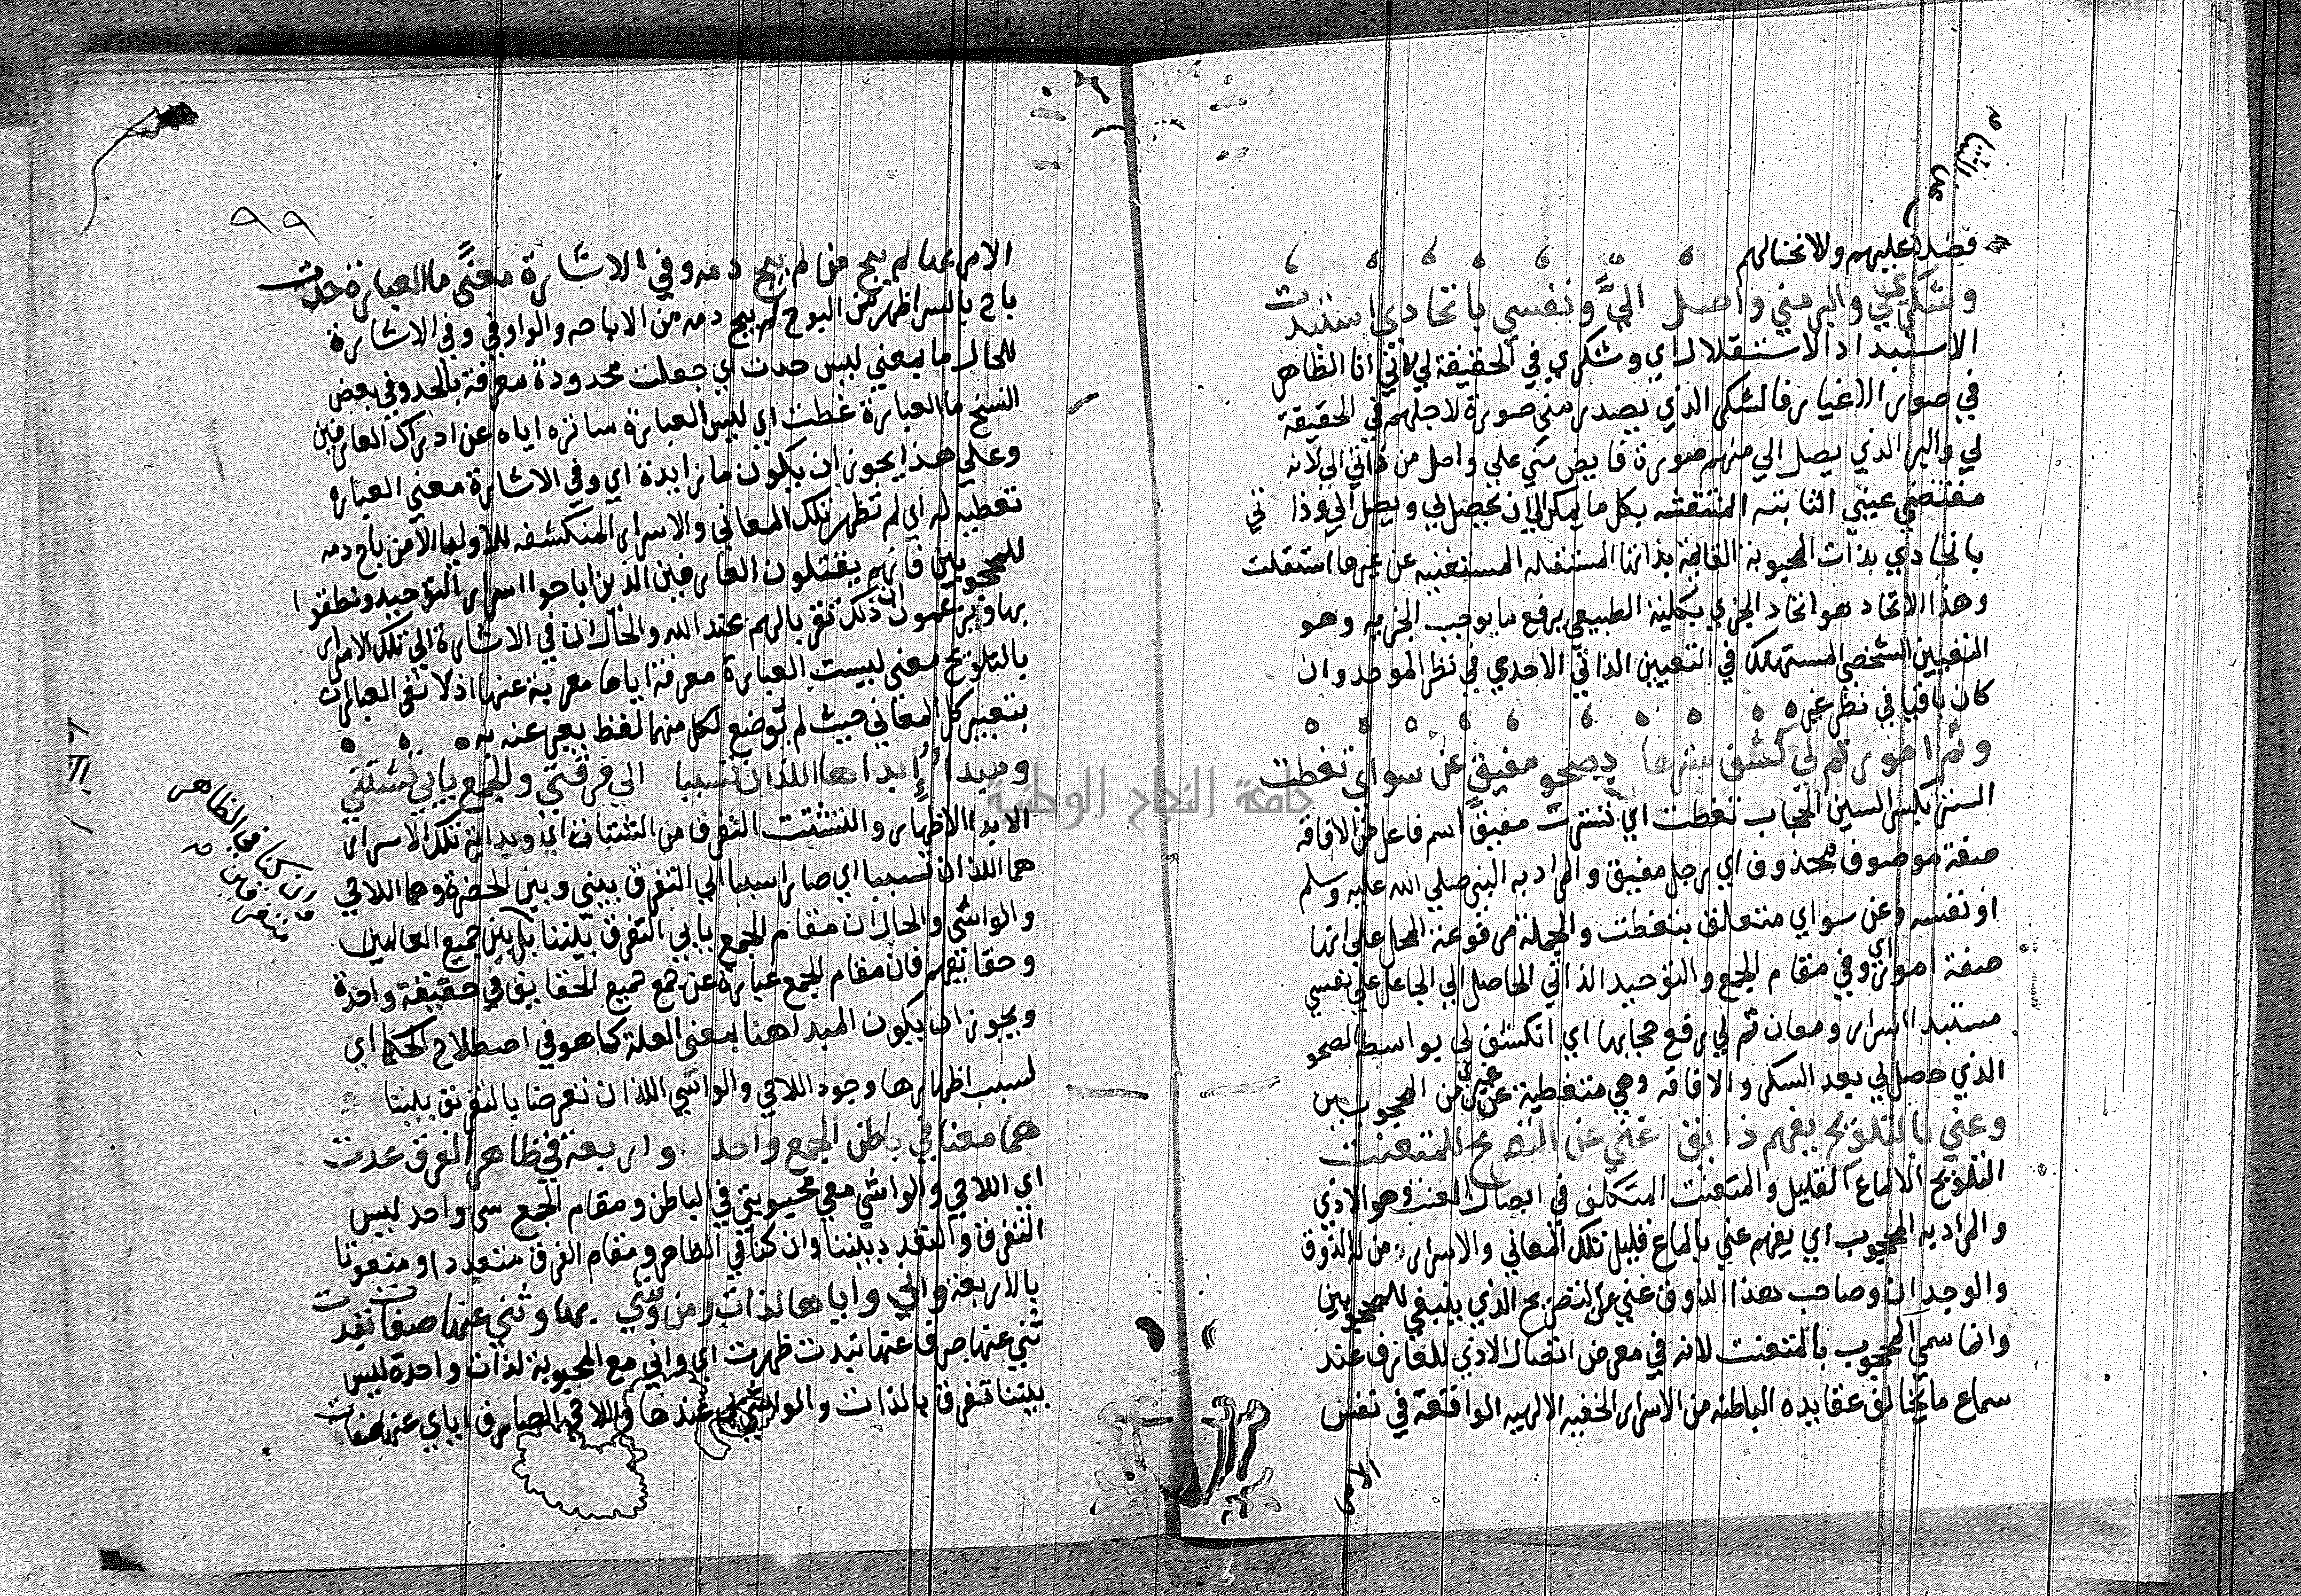 فضلا عليهم ولا نختالهم
وشكري لي والبر مني واصل اليَّ ونفسي باتحادي استبدت
الاستبداد الاستقلال اي وشكري في الحقيقة لي لاني انا الظاهر
في صور الاغيار فالشكر الذي يصدر مني صورة لاجلهم في الحقيقة
لي والبر الذي يصل الي منهم صورة فايض مني علي واصل من ذاتي الي لانه
مقتضي عيني الثابته المنتقشه بكل ما يمكن لي ان يحصل لي ويصل الي وذا تي
باتحادي بذات المحبوبة القايمة بذاتها المستقله المستغنيه عن غيرها استقلت
وهذا الاتحاد هو اتحاد الجزي بكلية الطبيعي برفع ما يوجب الجزييه وهو
التعيين الشخصي المستهلك في التعيين الذاتي الاحدي في نظر الموحد وان
كان باقيا في نظر غيره
وثم امور تم لي كشف سترها بصحو مفيق عن سواي تغطت
الستر بكسر السين الحجاب تغطت اي تسترت مفيق اسم فاعل من الافاقه
صفة موصوف محذوف اي رجل مفيق والمراد به النبي صلي الله عليه وسلم
او نفسه وعن سواي متعلق بتغطت والجملة مرفوعة المحل علي انها
صفة امور اي وفي مقام الجمع والتوحيد الذاتي الحاصل لي الجاعل علي نفسي
مستبدا اسرار ومعان تم لي رفع حجابها اي انكشف لي بواسطة الصحو
الذي حصل لي بعد السكر والافاقه وهي متغطية عن غيري من المحجوبين
وعني بالتلويح يفهم ذايق غني عن التصريح للمتعنت
التلويح الالماع القليل والمتعنت المتكلف في ايصال العنت وهو الاذي
والمراد به المحجوب اي يفهم عني بالماع قليل تلك المعاني والاسرار من له الذوق
والوجدان وصاحب هذا الذوق غني عن التصريح الذي ينبغي للمحجوبين
وانما سمي المحجوب بالمتعنت لانه في معرض اتصال الاذي للعارف عند
سماع ما يخالف عقايده الباطنه من الاسرار الخفيه الالهيه الواقعة في نفس
الامر
٩٩
الامر بها لم يبح من لم يبح دمه وفي الاشارة معنًى ما العبارة حدت
باح بالسر اظهره من البوح لم يبح دمه من الاباحه والواو في وفي الاشارة
للحال ما بمعني ليس حدت اي جعلت محدودة معرفة بالحد وفي بعض
النسخ ما العبارة غطت اي ليس العبارة ساتره اياه عن ادراك العارفين
وعلي هذا يجوز ان يكون ما زايدة اي وفي الاشارة معني العباره
تغطيه له اي لم تظهر تلك المعاني والاسرار المنكشفه للاوليا الا من باح دمه
للمحجوبين فانهم يقتلون العارفين الذين اباحوا اسرار التوحيد ونطقوا
بها ويزعمون ان ذلك تقربا لهم عند الله والحال ان في الاشارة الي تلك الاسرار
بالتلويح معني ليست العبارة معرفة اياها معربة عنها اذ لا تفي العبارات
بتعبير كل المعاني حيث لم يوضع لكل منهما لفظ يعبر عنه به
ومبدأ إبداها اللذان تسببا الي فرقتي والجمع يابي تشتتي
الابدا الاظهار والتشتت التفرق من الشتات اي ومبدا تلك الاسرار
هما اللذان تسببا اي صارا سببا الي التفرق بيني وبين الحضرة وهما اللاحي
والواشي والحال ان مقام الجمع يابي التفرق بيننا بل بين جميع العالمين
وحقايقهم فان مقام الجمع عبارة عن جمع جميع الحقايق في حقيقة واحدة
ويجوز ان يكون المبدا هنا بمعنى العلة كما هو في اصطلاح الحكما اي
لسبب اظهارها وجود اللاحي والواشي اللذان تعرضا بالتفريق بيننا
هما معنا في باطن الجمع واحد واربعة في ظاهر الفرق عدت
اي اللاحي والواشي معي محبوبتي في الباطن ومقام الجمع سي واحد ليس
التفرق والتعدد بيننا وان كنا في الظاهر ومقام الفرق متعددا ومنعوتا
بالاربعة واني واياها لذات ومن وشي بها وثني عنها صفات تبدت
ثني عنها صرف عنها تبدت ظهرت اي واني مع المحبوبة لذات واحدة ليس
بيننا تفرق بالذات والواشي عندها واللاحي الصارف اياي عنها صفات
وان كنا في الظاهر